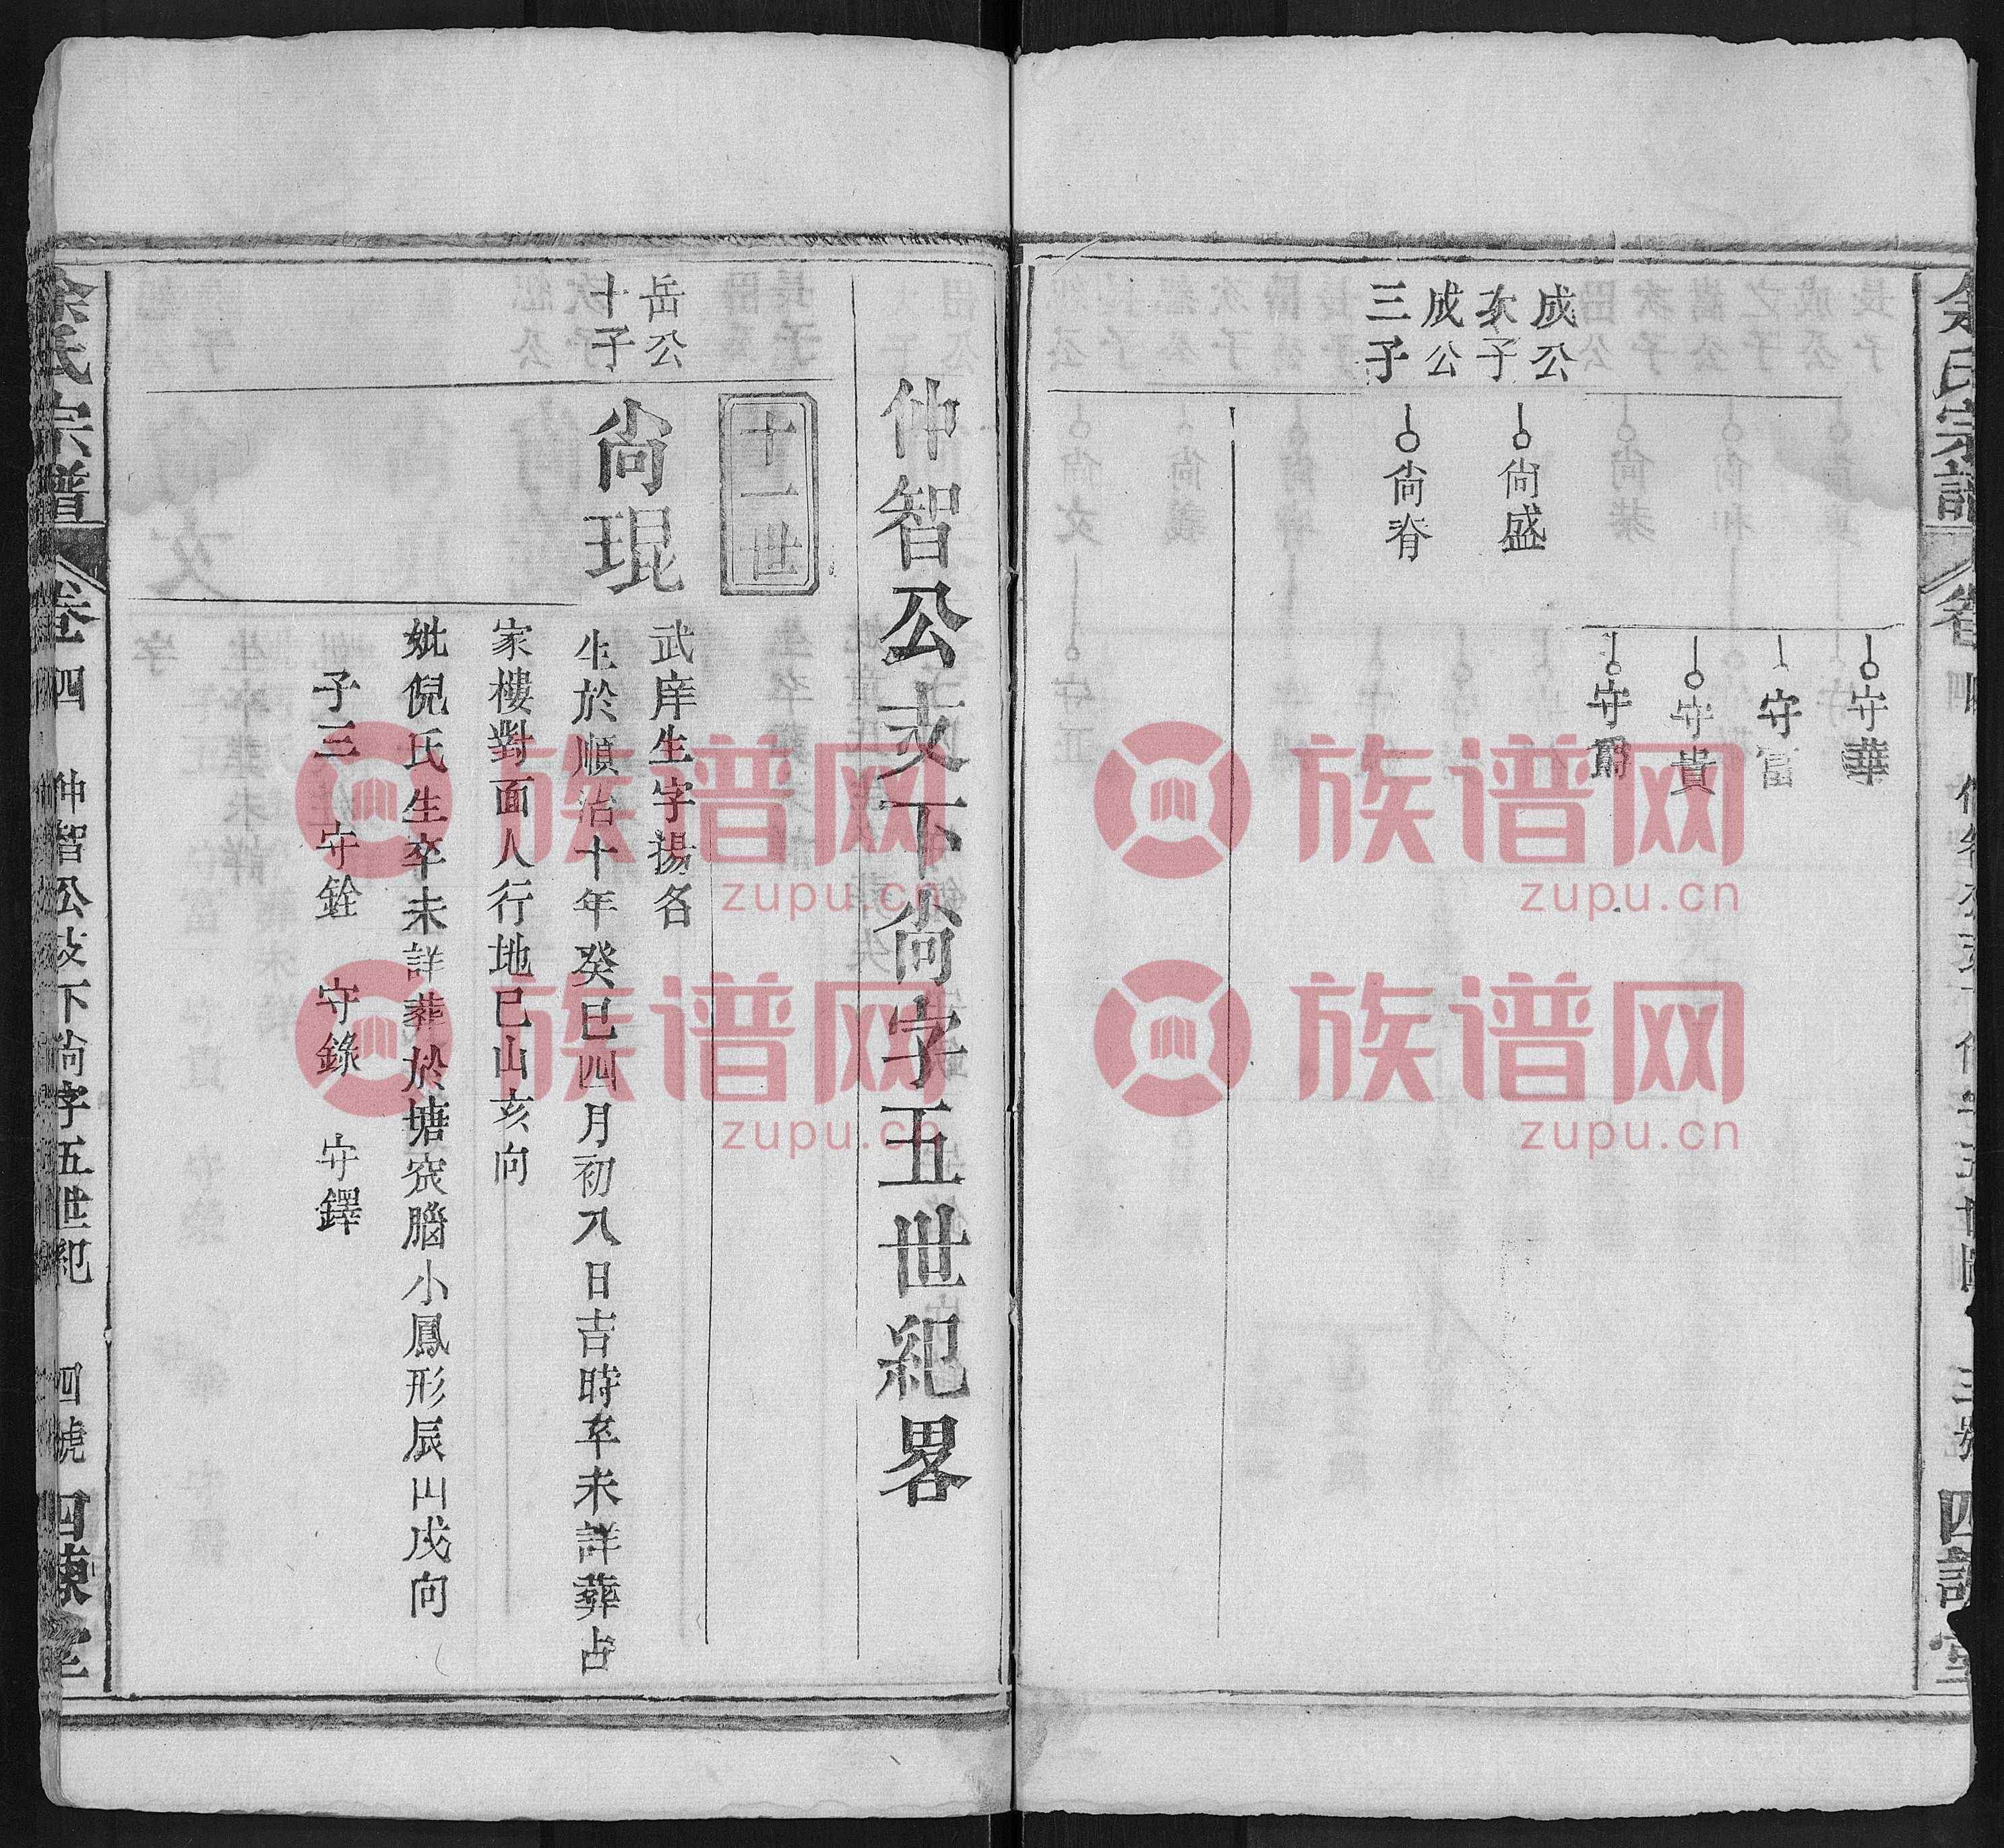 余氏宗譜
卷四
三號
守華
守富
守貴
守爵
成公
次子
尚盛
成公
三子
尚脊
仲智公支下尚字五世紀畧
十一世
岳公
十子
尚琨
武庠生字揚名
生於順治十年癸巳四月初八日吉時卒未詳葬占
家樓對面人行地巳山亥向
妣倪氏生卒未詳葬於塘窊腦小鳳形辰山戌向
子三 守銓 守錄 守鐸
余氏宗譜
卷四 仲智公支下尚字五世紀 四號 四諫堂
族谱网
zupu.cn
族谱网
zupu.cn
族谱网
zupu.cn
族谱网
zupu.cn